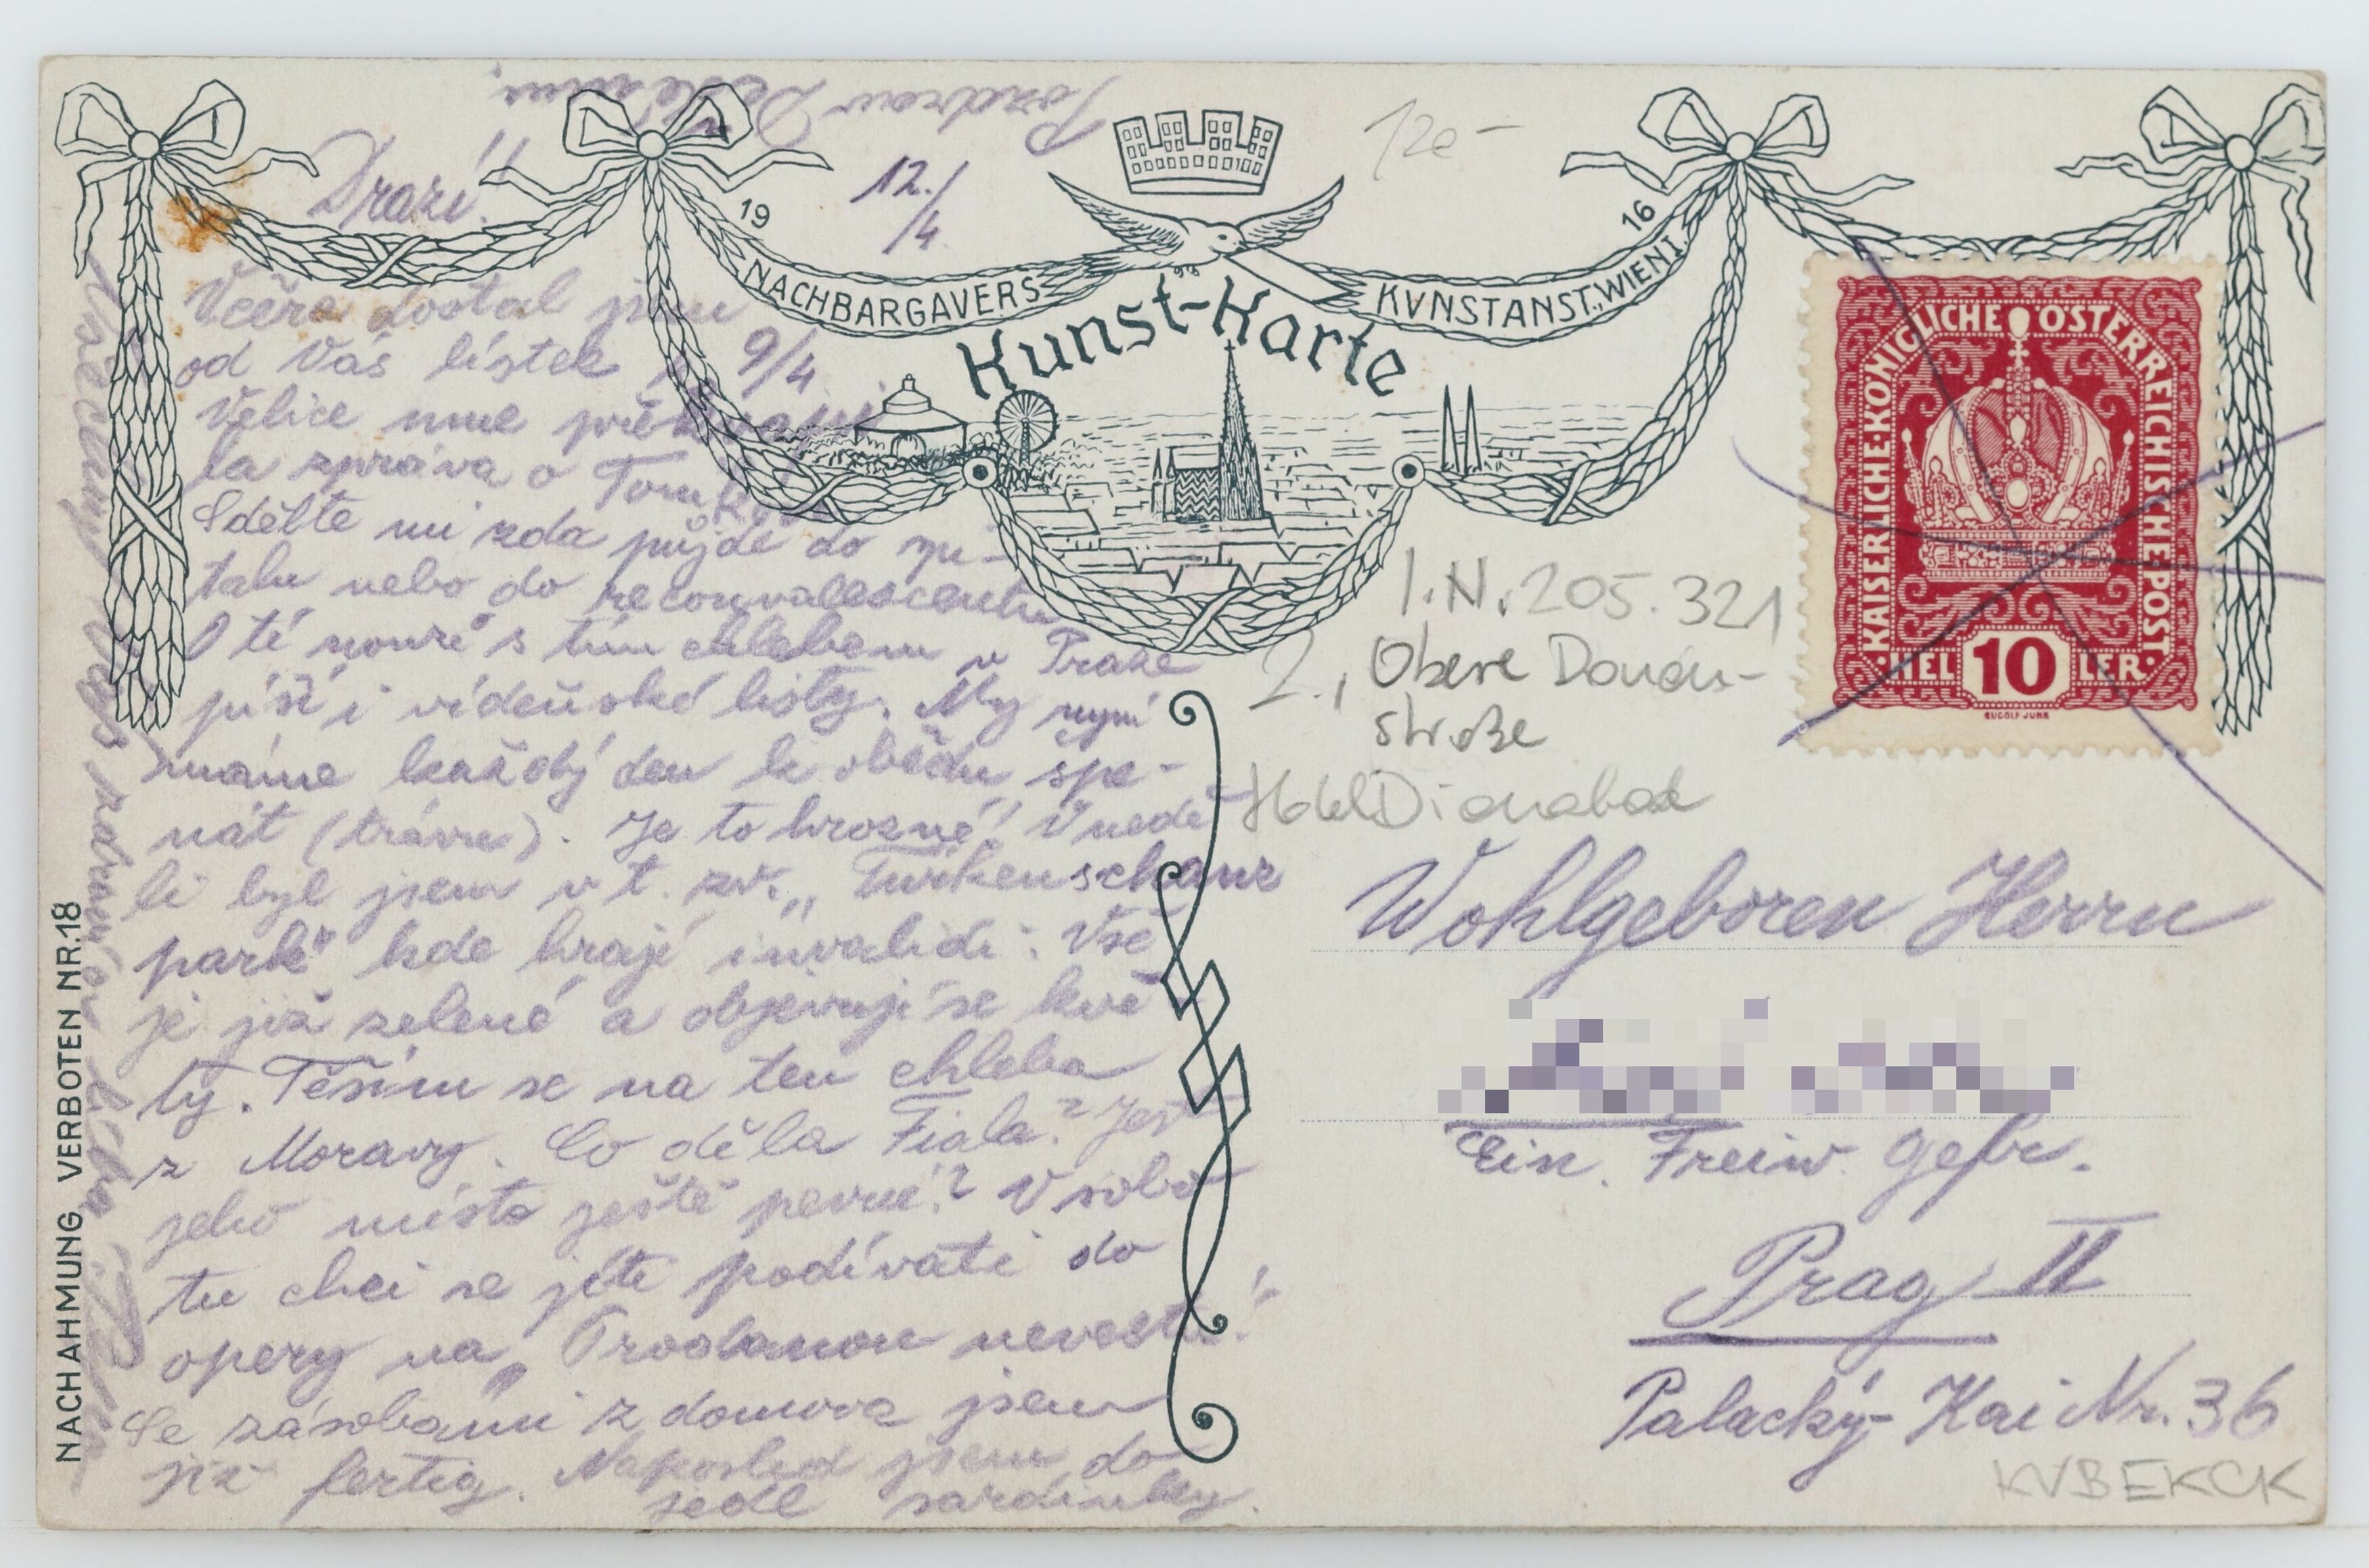 Pozdrav Dešenim.
Drazí!
12./4
120-
19 16
NACHBARGAVERS KVNSTANST. WIEN I.
Kunst-Karte
Včera dostal jsem
od Vás lístek z 9/4
Velice mne překvapi
la zpráva o Tom
Sdělte mi zda půjde do
talu nebo do reconvalescentu
O té nouzi s tím chlebem v Praze
píší i vídeňské listy. My nyní
máme každý den k obědu špe-
nát (trávu). Je to hrozné! V nedě
li byl jsem v t. zv. „Türkenschanz
park" kde hrají invalidi. Vše
je již zelené a objevují se kvě
ty. Těším se na ten chleba
z Moravy. Co děla Fiala? Jest
jeho místo ještě pevné? V sobo
tu chci se jíti podívati do
opery na Prodanou nevěstu!
Se zásobami z domova jsem
již fertig. Naposled jsem do
jedl sardinky.
Všeckny Vás zdraví a líbá
NACHAHMUNG VERBOTEN NR.18
KAISERLICHE KÖNIGLICHE ÖSTERREICHISCHE POST
HEL 10 LER
RUDOLF JUNK
I.N. 205.321
2., Obere Donau-
straße
Hotel Dianabad
Wohlgeboren Herrn
Ein. Freiw. Gefr.
Prag II
Palacký-Kai Nr. 36